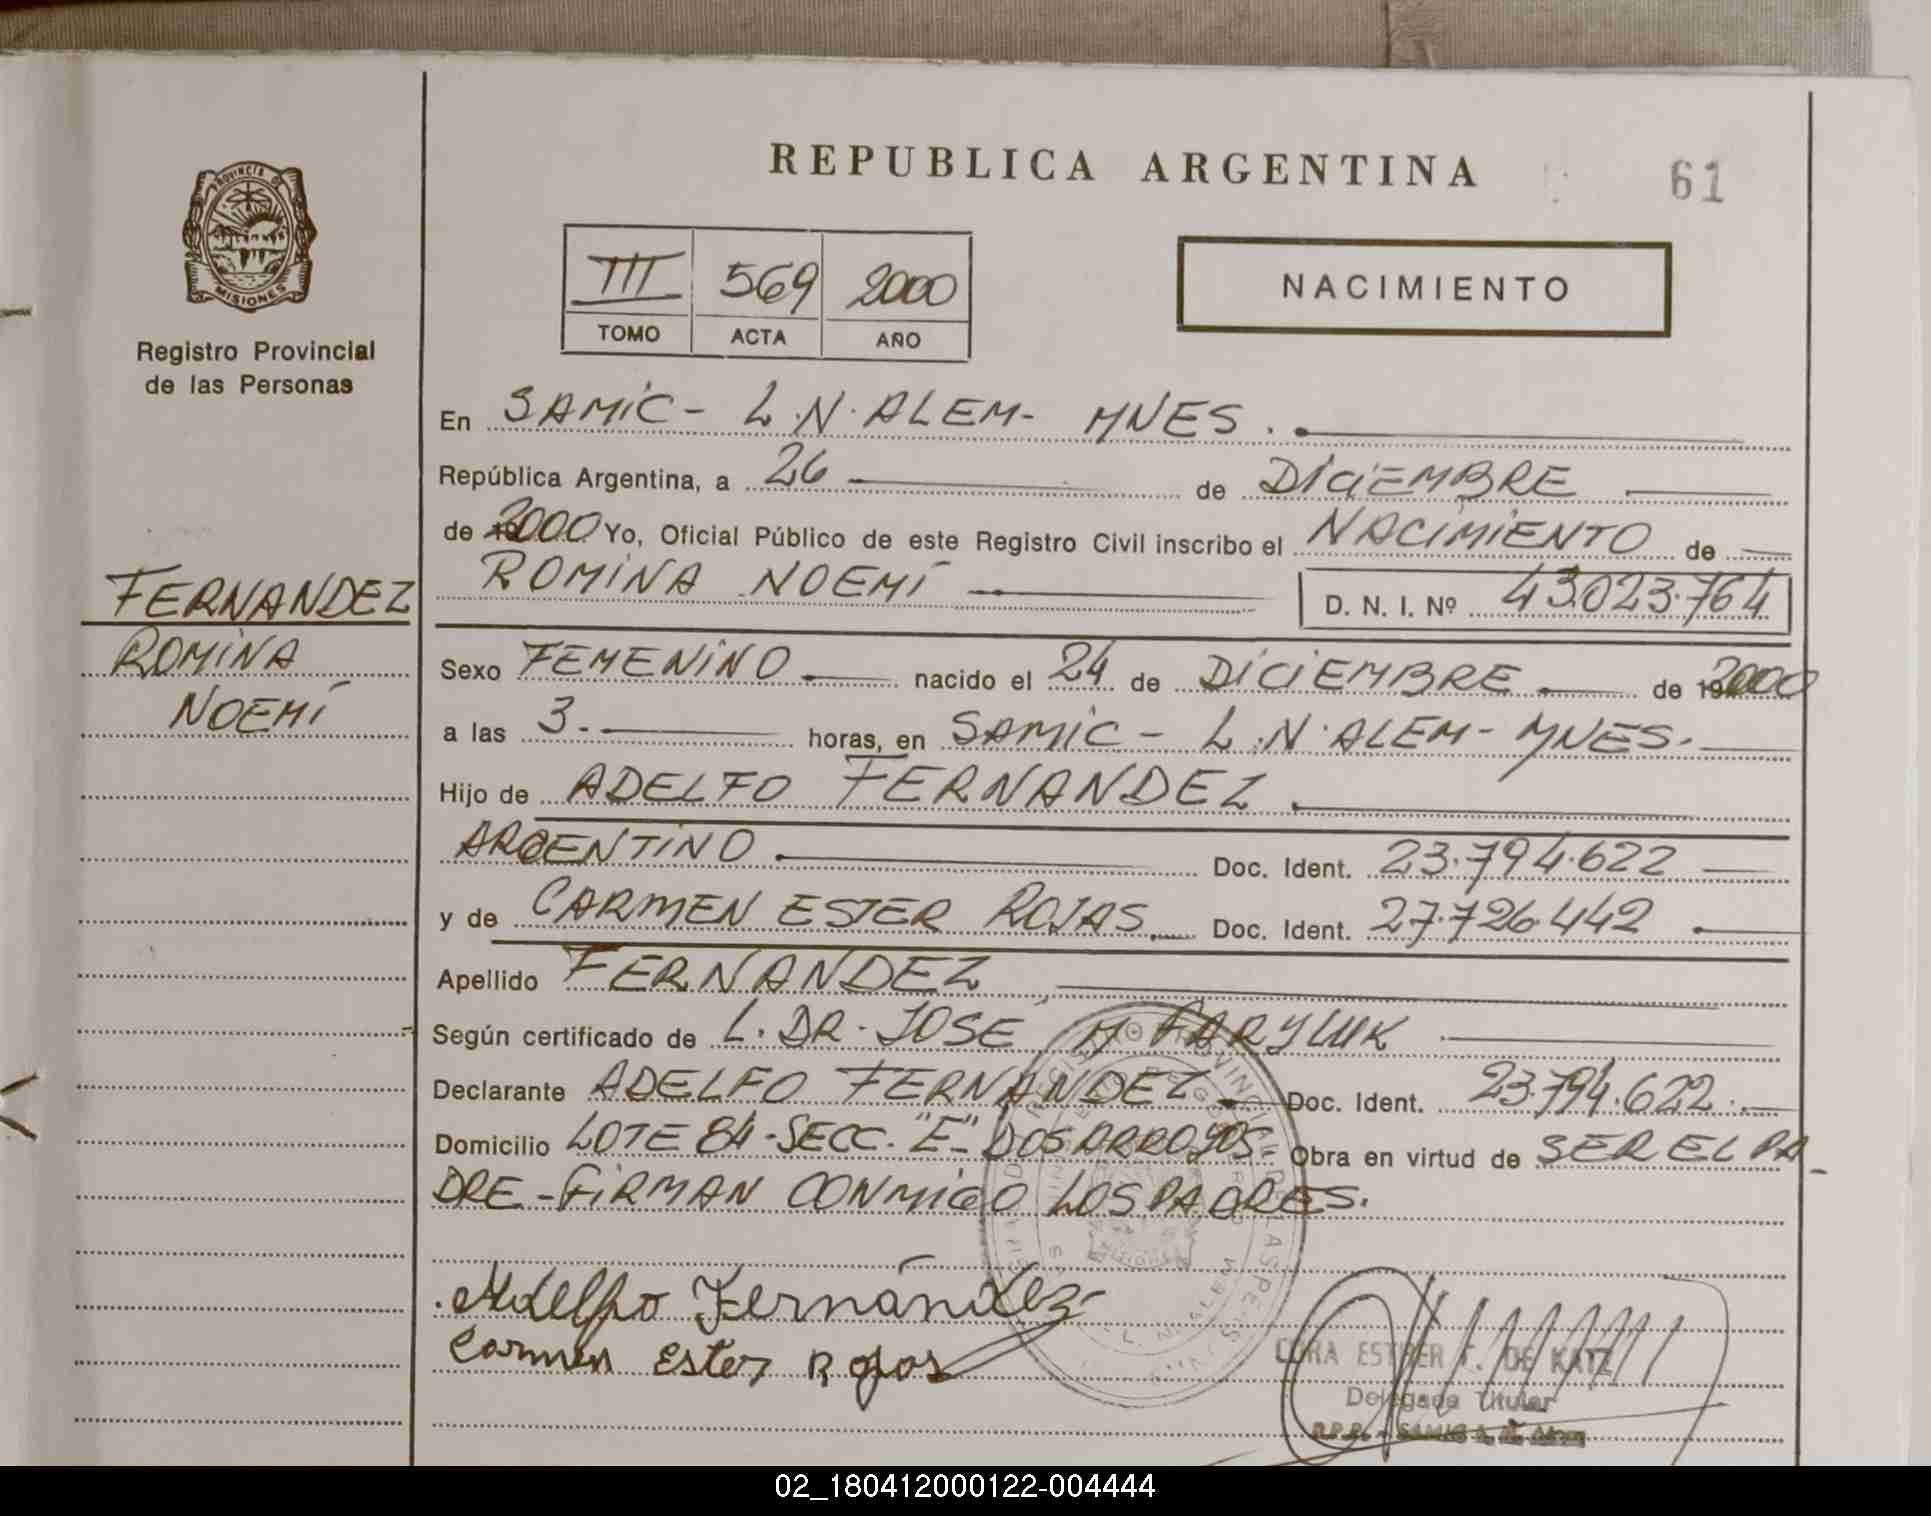 REPUBLICA ARGENTINA
61
PROVINCIA DE
MISIONES
Registro Provincial
de las Personas
III 569 2000
TOMO ACTA AÑO
NACIMIENTO
En SAMIC - L.N. ALEM - MNES.
República Argentina, a 26 de DICIEMBRE
de 2000 Yo, Oficial Público de este Registro Civil inscribo el NACIMIENTO de
ROMINA NOEMÍ D. N. I. Nº 43.023.764
FERNANDEZ
ROMINA
NOEMÍ
Sexo FEMENINO nacido el 24 de DICIEMBRE de 2000
a las 3.- horas, en SAMIC - L.N. ALEM - MNES.
Hijo de ADELFO FERNANDEZ
ARGENTINO Doc. Ident. 23.794.622
y de CARMEN ESTER ROJAS Doc. Ident. 27.726.442
Apellido FERNANDEZ
Según certificado de L. DR. JOSE M FARYLUK
Declarante ADELFO FERNANDEZ Doc. Ident. 23.794.622.
Domicilio LOTE 84 - SECC. "E" - DOS ARROYOS. Obra en virtud de SER EL PA-
DRE - FIRMAN CONMIGO LOS PADRES.
Adelfo Fernández
Carmen Ester Rojas
CORA ESTHER F. DE KATZ
Delegada Titular
R.P.P. - SAMIC L. N. Alem
02_180412000122-004444